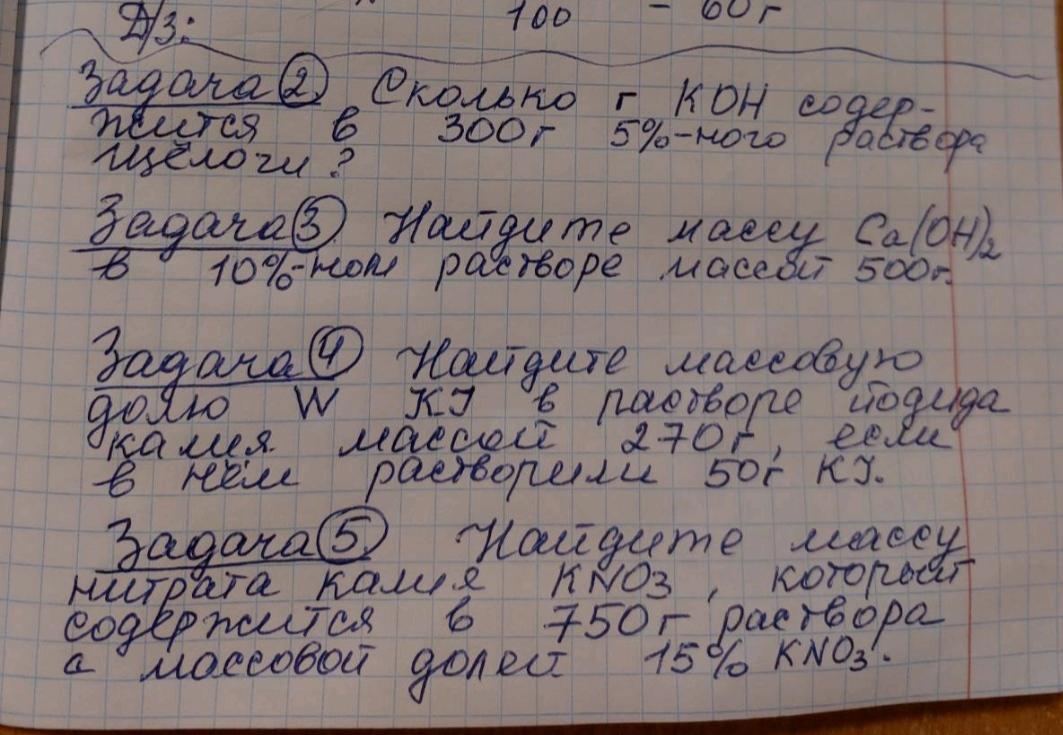 100 - 60 г
Д/З:
Задача 2 Сколько г KOH содер-
жится в 300г 5%-ного раствора
щёлочи?
Задача 3 Найдите массу Ca(OH)2
в 10%-ном растворе массой 500г.
Задача 4 Найдите массовую
долю W KJ в растворе йодида
калия массой 270г, если
в нём растворили 50г KJ.
Задача 5 Найдите массу
нитрата калия KNO3, который
содержится в 750г раствора
с массовой долей 15% KNO3.